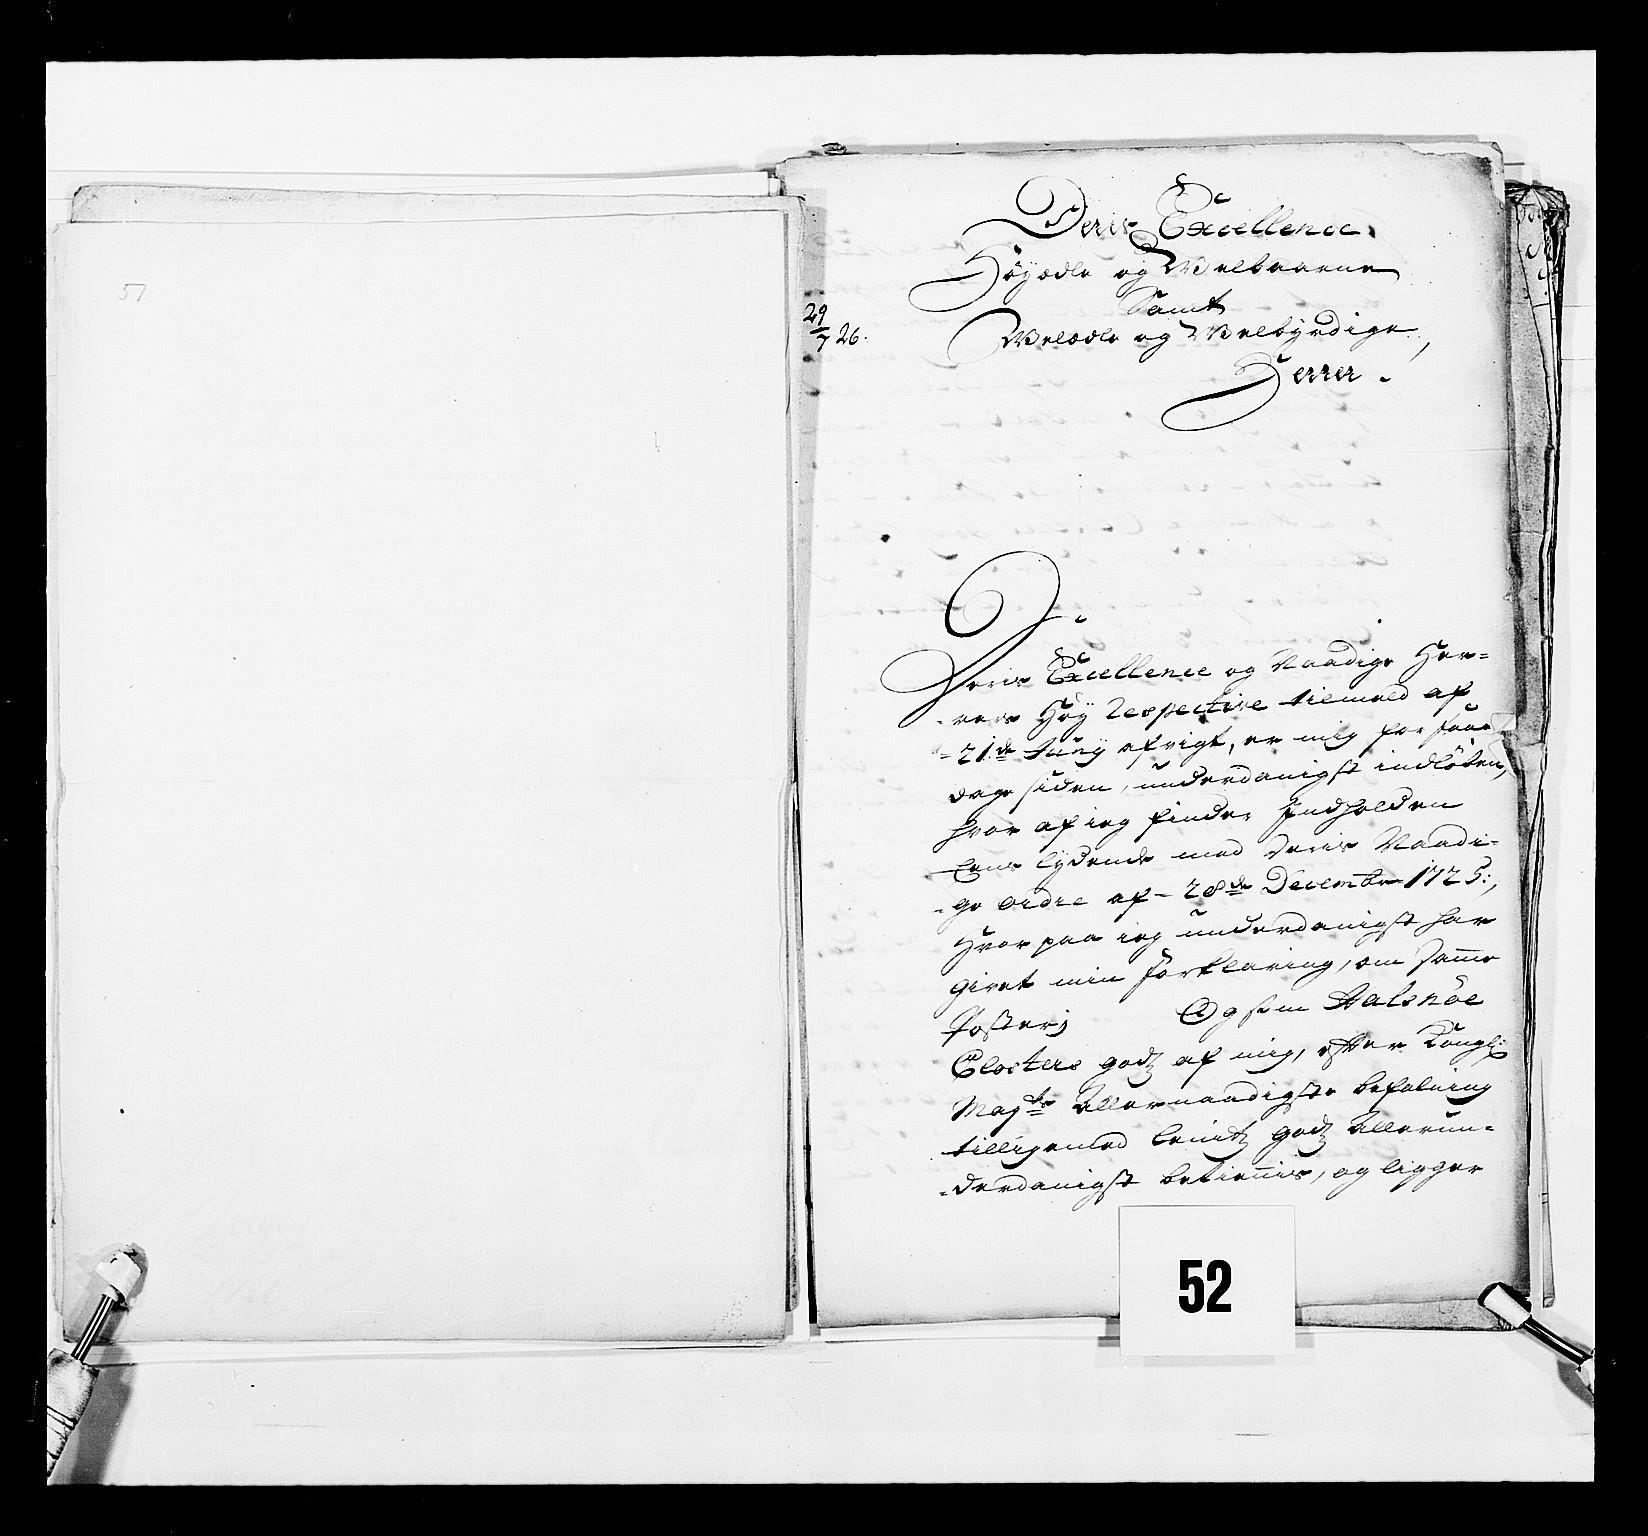 51
Deris Excellence.
Höyædle og Welbaarne
Samt
29/7 26.
Welædle og Welbyrdige,
Herrer.
Deris Excellence og Naadige Her-
-rers Höy Respective tilmeld af
-21de Juny afvigt, er mig for faae
dage siden, underdanigst indløben,
hvor af ieg finder Indholden
Eens lydende med Deris Naadi-
-ge Ordre af 28de Decembr 1725.,
Hvor paa ieg underdanigst har
givet min forklaring, om samme
Posterj Og som Halsnöe
Closters godz af mig, efter Kongl:
Mayts Allernaadigste befalning
tilligemed Leuitz godz Allerun-
-derdanigst betiennis, og ligger
52